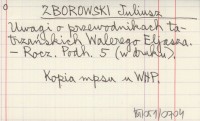 ZBOROWSKI Juliusz
Uwagi o przewodnikach ta-
trzańskich Walerego Eljasza.
– Rocz. Podh. 5 (w druku).
Kopia mpsu u WHP.